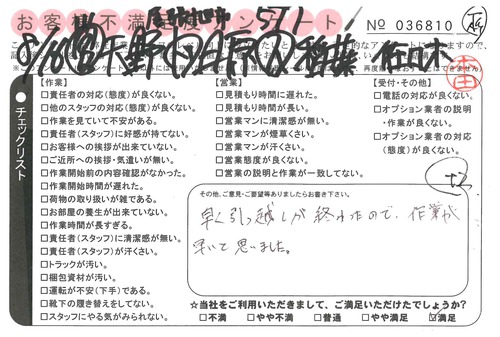 お客様不満足度アンケート
No 036810
チェックリスト
【作業】
□責任者の対応(態度)が良くない。
□他のスタッフの対応(態度)が良くない。
□作業を見ていて不安がある。
□責任者(スタッフ)に好感が持てない。
□お客様への挨拶が出来ていない。
□ご近所への挨拶・気遣いが無い。
□作業開始前の内容確認がなかった。
□作業開始時間が遅れた。
□荷物の取り扱いが雑である。
□お部屋の養生が出来ていない。
□作業時間が長すぎる。
□責任者(スタッフ)に清潔感が無い。
□責任者(スタッフ)が汗くさい。
□トラックが汚い。
□梱包資材が汚い。
□運転が不安(下手)である。
□靴下の履き替えをしてない。
□スタッフにやる気がみられない。
【営業】
□見積もり時間に遅れた。
□見積もり時間が長い。
□営業マンに清潔感が無い。
□営業マンが煙草くさい。
□営業マンが汗くさい。
□営業態度が良くない。
□営業の説明と作業が一致してない。
【受付・その他】
□電話の対応が良くない。
□オプション業者の説明・作業が良くない。
□オプション業者の対応(態度)が良くない。
その他、ご意見・ご要望等ありましたらお書き下さい。
早く引っ越しが終わったので、作業が
早いと思いました。
☆当社をご利用いただきまして、ご満足いただけたでしょうか?
□不満 □やや不満 □普通 □やや満足 ☑満足